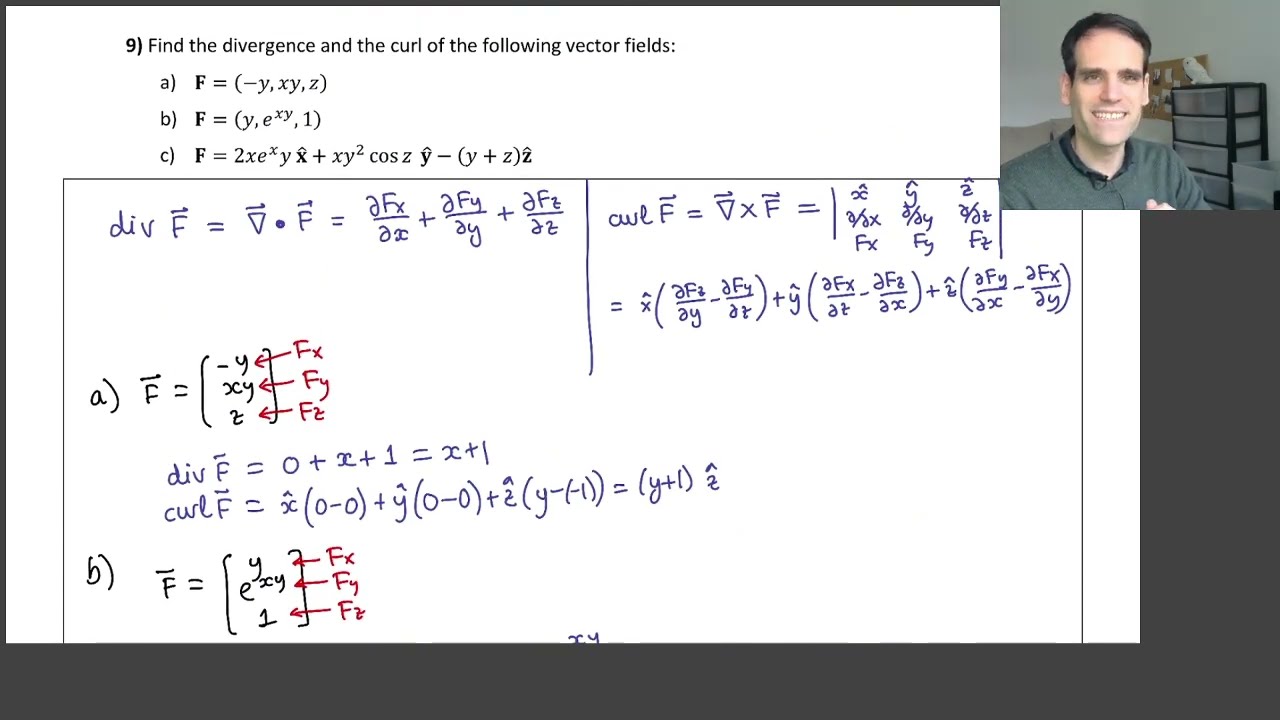 9) Find the divergence and the curl of the following vector fields:
a) F = (−y, xy, z)
b) F = (y, e^{xy}, 1)
c) F = 2xe^x y x̂ + xy² cos z ŷ − (y + z)ẑ
div F⃗ = ∇⃗ • F⃗ = ∂Fx/∂x + ∂Fy/∂y + ∂Fz/∂z
curl F⃗ = ∇⃗ × F⃗ = | x̂ ŷ ẑ
∂/∂x ∂/∂y ∂/∂z
Fx Fy Fz |
= x̂(∂Fz/∂y − ∂Fy/∂z) + ŷ(∂Fx/∂z − ∂Fz/∂x) + ẑ(∂Fy/∂x − ∂Fx/∂y)
a) F⃗ = [ −y ← Fx
xy ← Fy
z ← Fz ]
div F⃗ = 0 + x + 1 = x+1
curl F⃗ = x̂(0−0) + ŷ(0−0) + ẑ(y−(−1)) = (y+1) ẑ
b) F⃗ = [ y ← Fx
e^{xy} ← Fy
1 ← Fz ]
xy